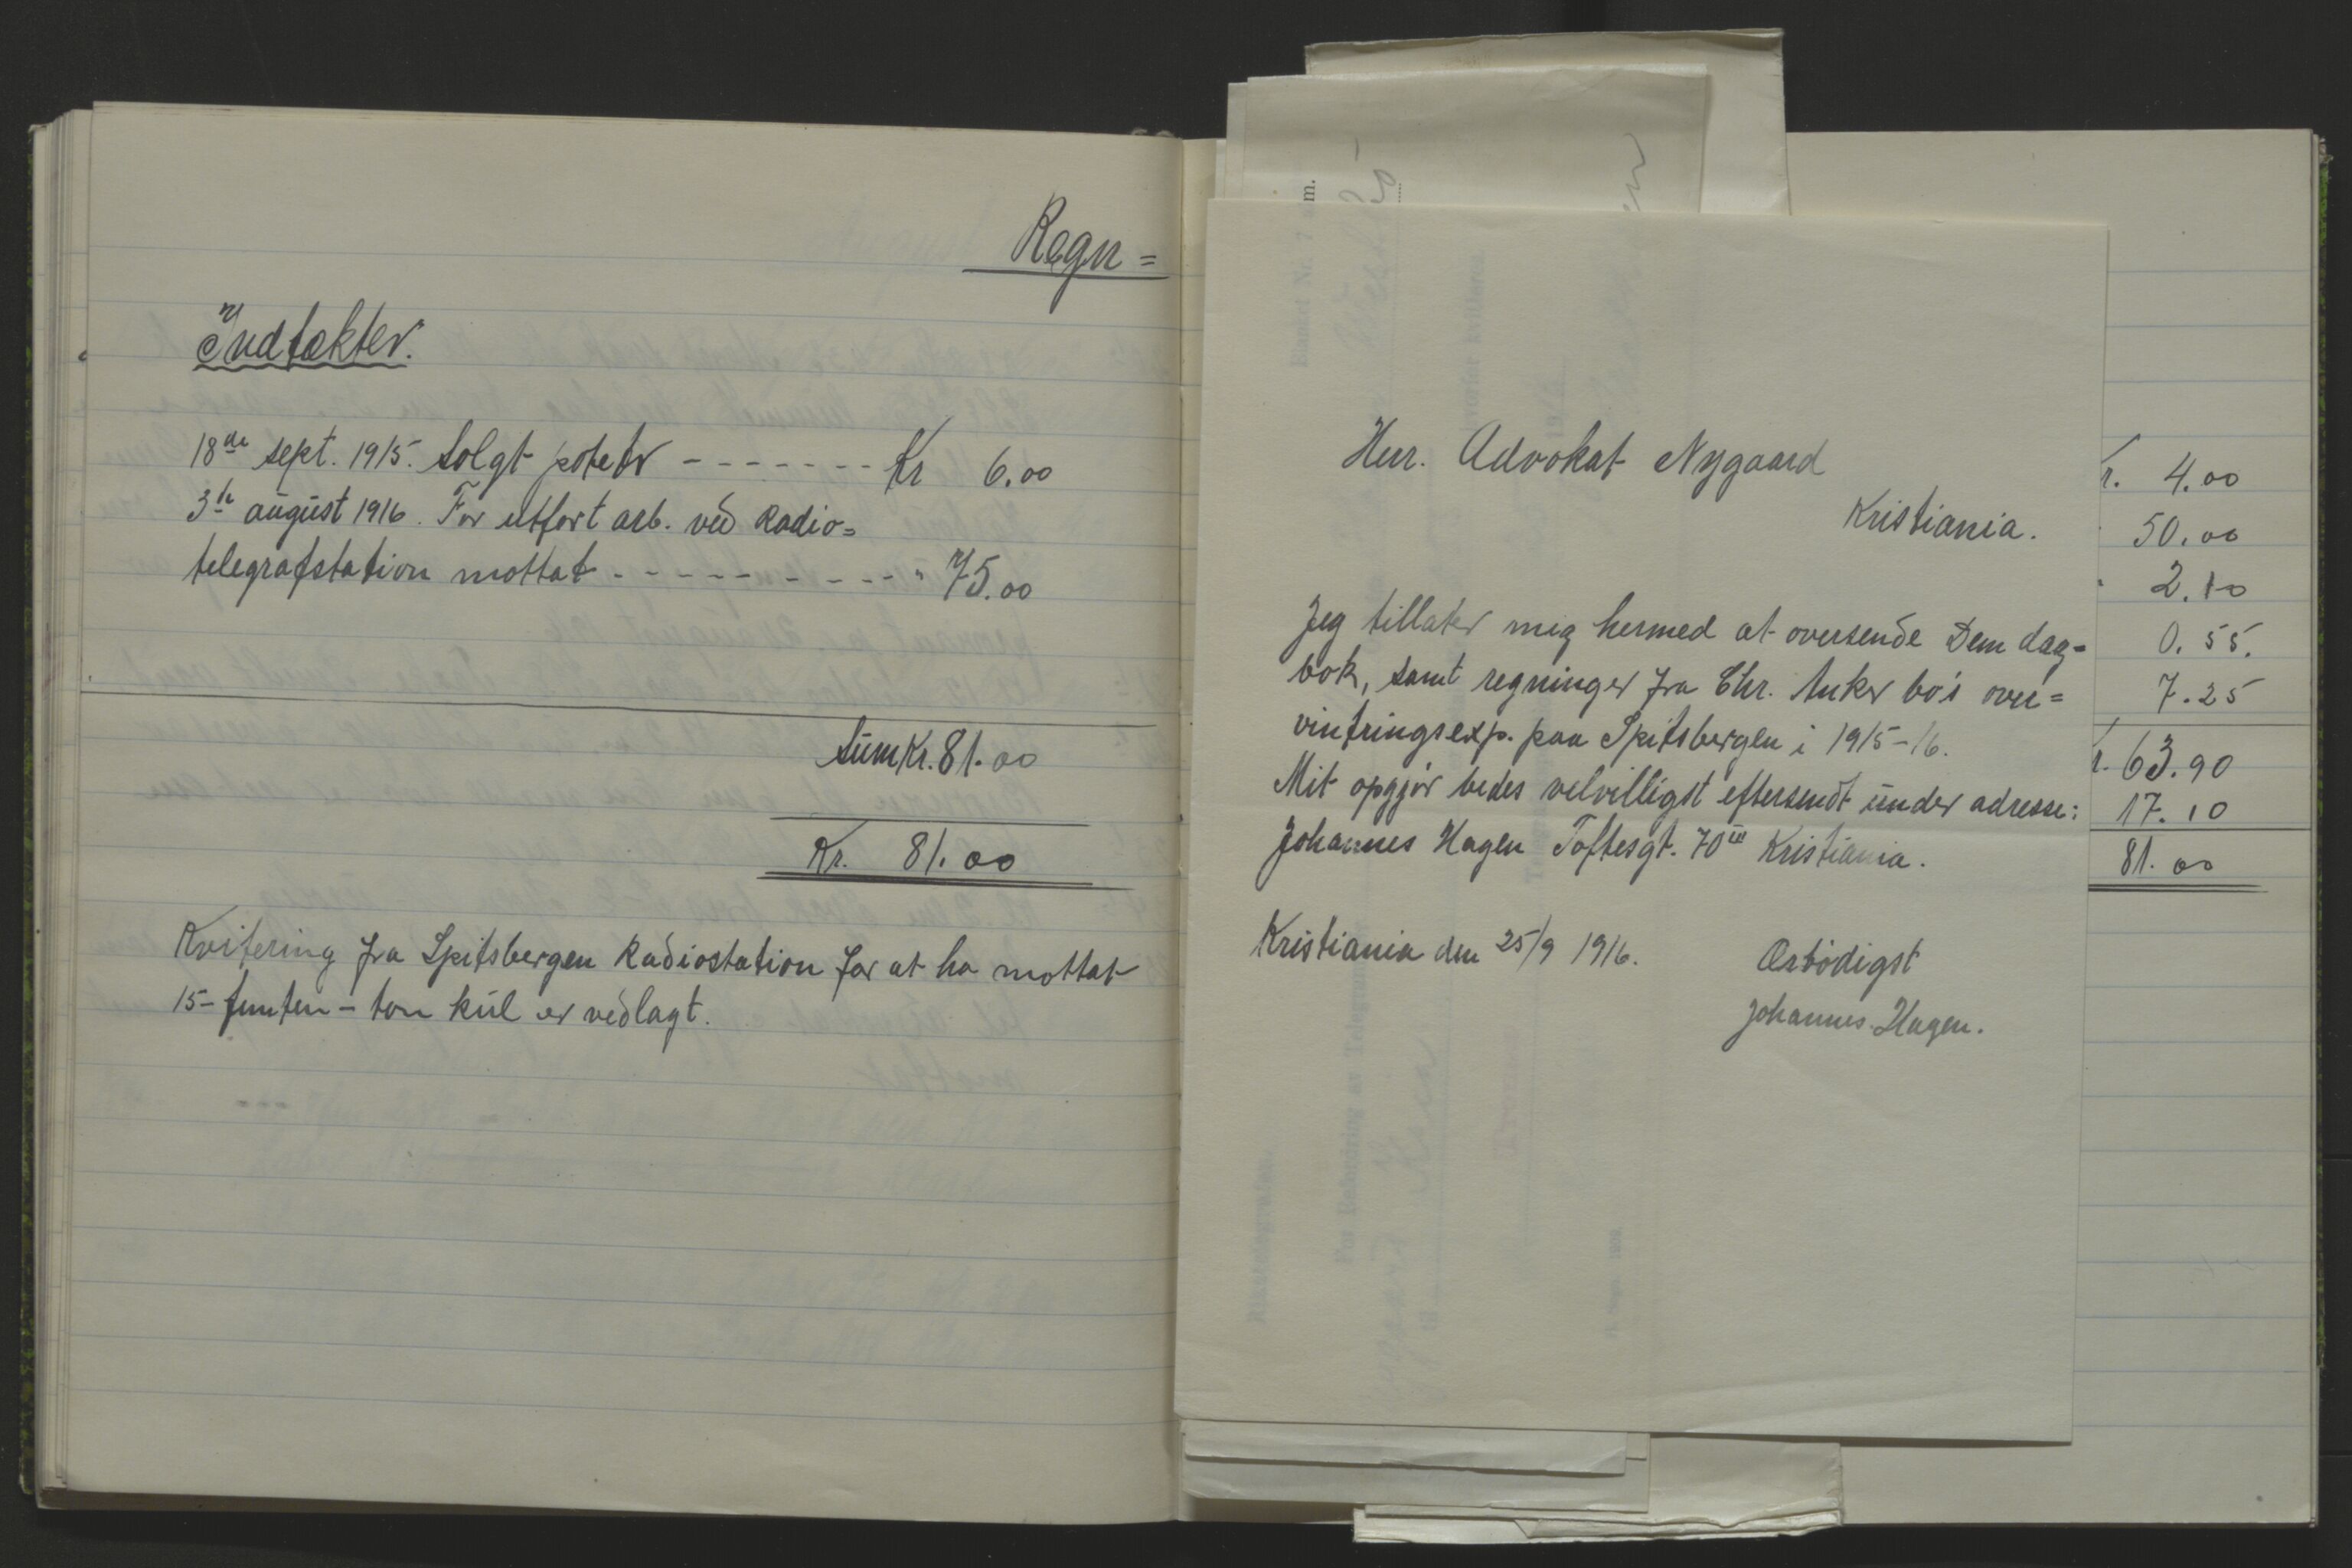 Regn=
Indtækter.
18de sept. 1915. Solgt poteter ------- Kr 6.00
3de august 1916. For utført arb. ved Radio=
telegrafstation mottat ---------- " 75.00
Sum Kr. 81.00
Kr. 81.00
Kvitering fra Spitsbergen Radiostation for at ha mottat
15 - femten - ton kul er vedlagt.
Herr. Advokat Nygaard
Kristiania.
Jeg tillater mig hermed at oversende Dem dag=
bok, samt regninger fra Chr. Anker bo's over=
vintringsexp. paa Spitsbergen i 1915-16.
Mit opgjør bedes velvilligst eftersendt under adresse:
Johannes Hagen Toftesgt. 70III Kristiania.
Kristiania den 25/9 1916.
Ærbødigst
Johannes Hagen.
Kr. 4.00
50.00
2.10
0.55.
7.25
Kr. 63.90
17.10
81.00